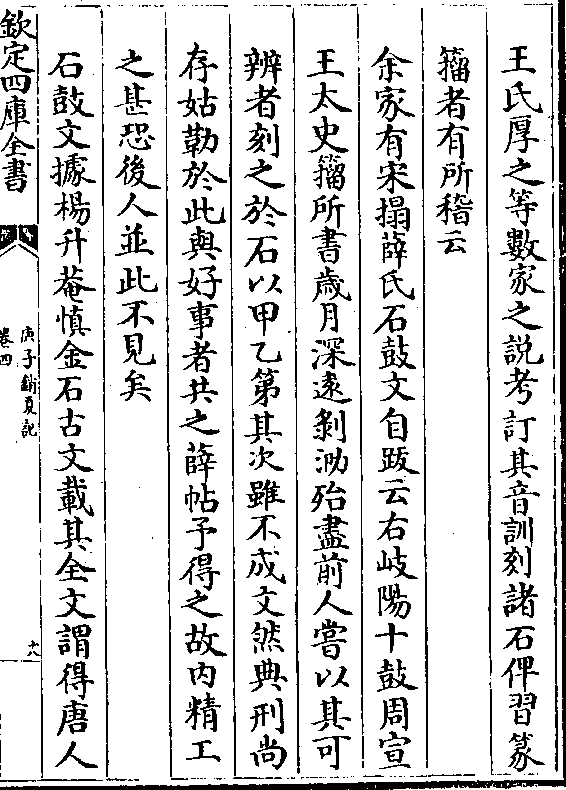 王氏厚之等數家之説考訂其音訓刻諸石俾習篆
籀者有所稽云
余家有宋搨薛氏石鼓文自䟦云右岐陽十鼓周宣
王太史籀所書歲月深逺剥泐殆盡前人嘗以其可
辨者刻之於石以甲乙第其次雖不成文然典刑尚
存姑勒於此與好事者共之薛帖予得之故内精工
之甚恐後人並此不見矣
石鼓文據楊升菴慎金石古文載其全文謂得唐人
欽定四庫全書
庚子銷夏記
卷四
十八